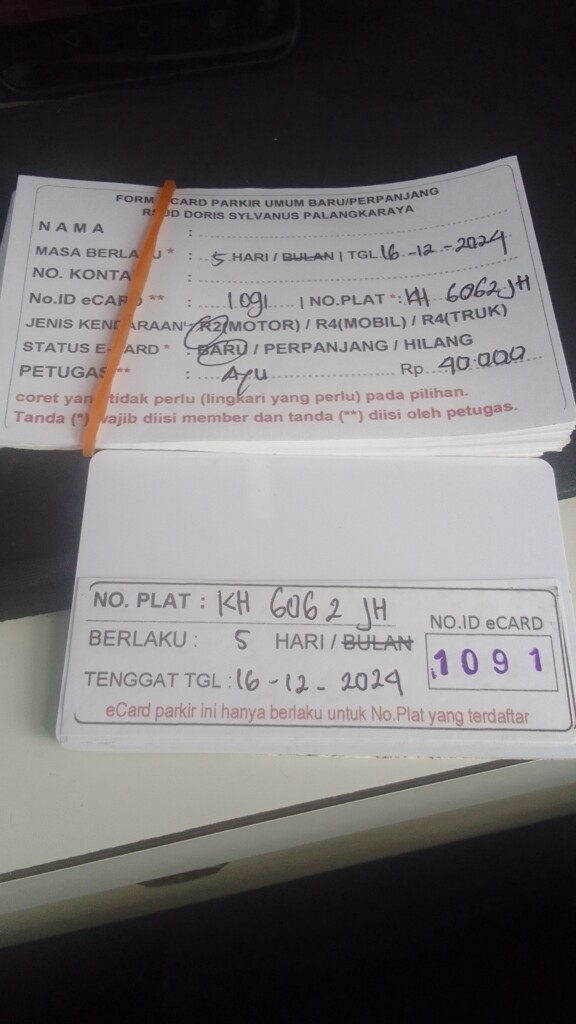 FORM ECARD PARKIR UMUM BARU/PERPANJANG
RSUD DORIS SYLVANUS PALANGKARAYA
N A M A :
MASA BERLAKU * : 5 HARI / BULAN | TGL 16-12-2024
NO. KONTA :
No.ID eCARD ** : 1091 | NO.PLAT * : KH 6062 JH
JENIS KENDARAAN* R2(MOTOR) / R4(MOBIL) / R4(TRUK)
STATUS E-CARD * : BARU / PERPANJANG / HILANG
PETUGAS ** : Ayu Rp 40.000
coret yang tidak perlu (lingkari yang perlu) pada pilihan.
Tanda (*) wajib diisi member dan tanda (**) diisi oleh petugas.
NO. PLAT : KH 6062 JH
NO.ID eCARD
BERLAKU : 5 HARI / BULAN
1091
TENGGAT TGL : 16-12-2024
eCard parkir ini hanya berlaku untuk No.Plat yang terdaftar